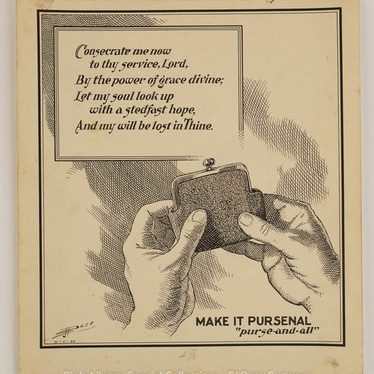 Consecrate me now
to thy service, Lord,
By the power of grace divine;
Let my soul look up
with a stedfast hope,
And my will be lost in Thine.
MAKE IT PURSENAL
"purse-and-all"